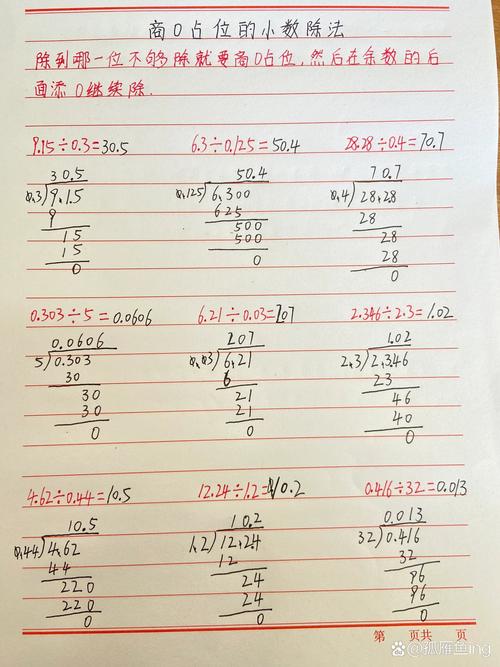 商0占位的小数除法
除到哪一位不够除就要商0占位,然后在余数的后
面添0继续除.
9.15÷0.3=30.5 6.3÷0.125=50.4 28.28÷0.4=70.7
30.5 50.4 70.7
0.3 9.15 0.125 6.300 0.4 28.28
9 625 28
15 500 28
15 500 28
0 0 0
0.303÷5=0.0606 6.21÷0.03=207 2.346÷2.3=1.02
0.0606 207 1.02
5 0.303 0.03 6.21 2.3 2.346
30 6 23
30 21 46
30 21 40
0 0 0
4.62÷0.44=10.5 12.24÷1.2=10.2 0.416÷32=0.013
10.5 10.2 0.013
0.44 4.62 1.2 12.24 32 0.416
44 12 32
220 24 96
220 24 96
0 0 0
第 页共 页
孤雁鱼ing